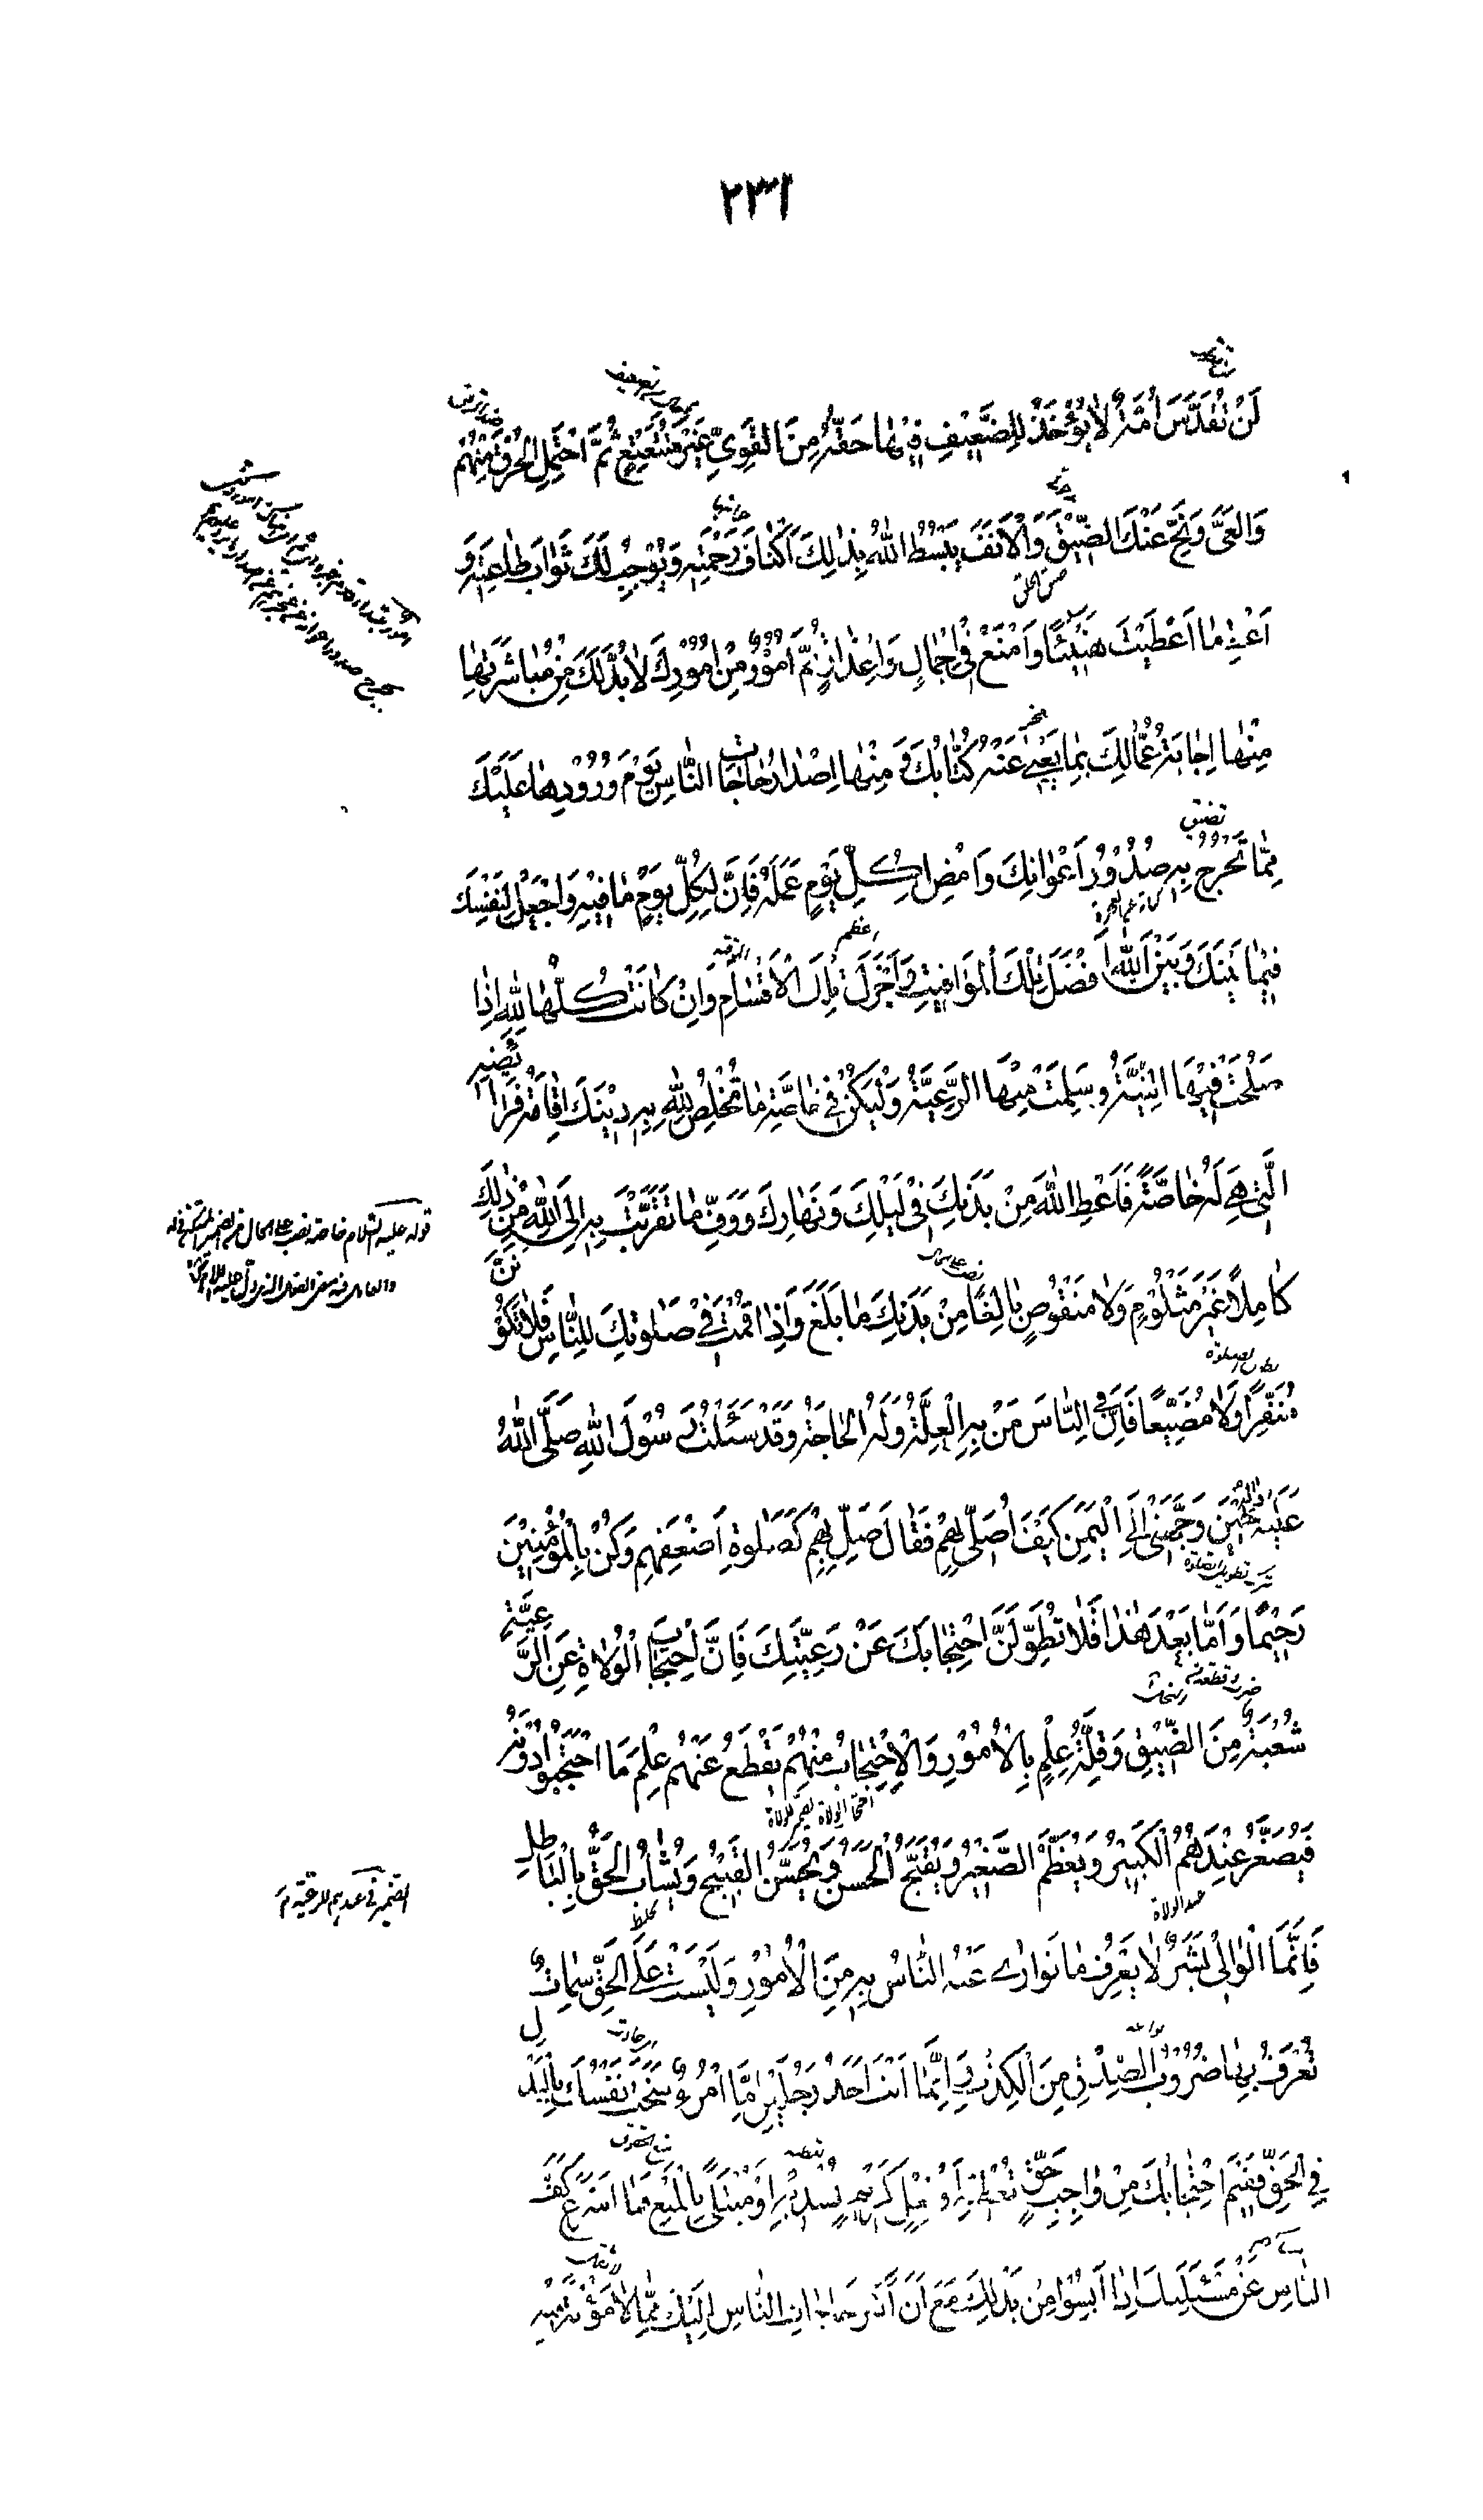 ٢٣١
لَنْ تُقَدَّسَ اُمَّةٌ لَا يُؤْخَذُ لِلضَّعِيْفِ فِيْهَا حَقُّهُ مِنَ الْقَوِيِّ غَيْرَ مُتَتَعْتِعٍ ثُمَّ احْتَمِلِ الْخُرْقَ مِنْهُمْ
وَالْعِيَّ وَنَحِّ عَنْكَ الضِّيْقَ وَالْاَنَفَ يَبْسُطِ اللهُ بِذٰلِكَ اَكْنَافَ رَحْمَتِهِ وَيُوْجِبْ لَكَ ثَوَابَ طَاعَتِهِ وَ
اَعْطِ مَا اَعْطَيْتَ هَنِيْئًا وَامْنَعْ فِيْ اِجْمَالٍ وَاِعْذَارٍ ثُمَّ اُمُوْرٌ مِنْ اُمُوْرِكَ لَا بُدَّ لَكَ مِنْ مُبَاشَرَتِهَا
مِنْهَا اِجَابَةُ عُمَّالِكَ بِمَا يَعْيٰى عَنْهُ كُتَّابُكَ وَ مِنْهَا اِصْدَارُ حَاجَاتِ النَّاسِ يَوْمَ وُرُوْدِهَا عَلَيْكَ
تضيق
مِمَّا تَحْرَجُ بِهِ صُدُوْرُ اَعْوَانِكَ وَاَمْضِ لِكُلِّ يَوْمٍ عَمَلَهُ فَاِنَّ لِكُلِّ يَوْمٍ مَا فِيْهِ وَاجْعَلْ لِنَفْسِكَ
اعظم
فِيْمَا بَيْنَكَ وَبَيْنَ اللهِ اَفْضَلَ تِلْكَ الْمَوَاقِيْتِ وَاَجْزَلَ تِلْكَ الْاَقْسَامِ وَاِنْ كَانَتْ كُلُّهَا لِلّٰهِ اِذَا
صَلُحَتْ فِيْهَا النِّيَّةُ وَسَلِمَتْ مِنْهَا الرَّعِيَّةُ وَلْيَكُنْ فِيْ خَاصَّةِ مَا تُخْلِصُ لِلّٰهِ بِهِ دِيْنَكَ اِقَامَةُ فَرَائِضِهِ
الَّتِيْ هِيَ لَهُ خَاصَّةً فَاَعْطِ اللهَ مِنْ بَدَنِكَ فِيْ لَيْلِكَ وَنَهَارِكَ وَوَفِّ مَا تَقَرَّبْتَ بِهِ اِلَى اللهِ مِنْ ذٰلِكَ
كَامِلًا غَيْرَ مَثْلُوْمٍ وَلَا مَنْقُوْصٍ بَالِغًا مِنْ بَدَنِكَ مَا بَلَغَ وَاِذَا قُمْتَ فِيْ صَلٰوتِكَ لِلنَّاسِ فَلَا تَكُوْنَنَّ
مُنَفِّرًا وَلَا مُضَيِّعًا فَاِنَّ فِي النَّاسِ مَنْ بِهِ الْعِلَّةُ وَلَهُ الْحَاجَةُ وَقَدْ سَئَلْتُ رَسُوْلَ اللهِ صَلَّى اللهُ
عَلَيْهِ وَاٰلِهِ حِيْنَ وَجَّهَنِيْ اِلَى الْيَمَنِ كَيْفَ اُصَلِّيْ بِهِمْ فَقَالَ صَلِّ بِهِمْ كَصَلٰوةِ اَضْعَفِهِمْ وَكُنْ بِالْمُؤْمِنِيْنَ
رَحِيْمًا وَاَمَّا بَعْدَ هٰذَا فَلَا تُطَوِّلَنَّ احْتِجَابَكَ عَنْ رَعِيَّتِكَ فَاِنَّ احْتِجَابَ الْوُلَاةِ عَنِ الرَّعِيَّةِ
شُعْبَةٌ مِنَ الضِّيْقِ وَقِلَّةُ عِلْمٍ بِالْاُمُوْرِ وَالْاِحْتِجَابُ مِنْهُمْ يَقْطَعُ عَنْهُمْ عِلْمَ مَا احْتَجَبُوْا دُوْنَهُ
فَيَصْغُرُ عِنْدَهُمُ الْكَبِيْرُ وَيَعْظُمُ الصَّغِيْرُ وَيَقْبُحُ الْحَسَنُ وَيَحْسُنُ الْقَبِيْحُ وَيُشَابُ الْحَقُّ بِالْبَاطِلِ
الضمير في عندهم للرعية
عند الولاة
يخلط
فَاِنَّمَا الْوَالِيْ بَشَرٌ لَا يَعْرِفُ مَا تَوَارٰى عَنْهُ النَّاسُ بِهِ مِنَ الْاُمُوْرِ وَلَيْسَتْ عَلَى الْحَقِّ سِمَاتٌ
تُعْرَفُ بِهَا ضُرُوْبُ الصِّدْقِ مِنَ الْكِذْبِ وَاِنَّمَا اَنْتَ اَحَدُ رَجُلَيْنِ اِمَّا امْرُءٌ سَخَتْ نَفْسُكَ بِالْبَذْلِ
فِي الْحَقِّ فَفِيْمَ احْتِجَابُكَ مِنْ وَاجِبِ حَقٍّ تُعْطِيْهِ اَوْ فِعْلٍ كَرِيْمٍ تُسْدِيْهِ اَوْ مُبْتَلًى بِالْمَنْعِ فَمَا اَسْرَعَ كَفَّ
النَّاسِ عَنْ مَسْئَلَتِكَ اِذَا اَيِسُوْا مِنْ بَذْلِكَ مَعَ اَنَّ اَكْثَرَ حَاجَاتِ النَّاسِ اِلَيْكَ مِمَّا لَا مَؤُنَةَ فِيْهِ